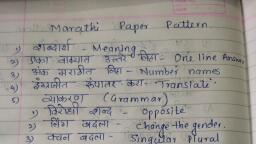 Marathi Paper Pattern
1) शब्दार्थ - Meaning
2) एका वाक्यात उत्तर लिहा - One line Answer
3) अंक मराठीत लिहा - Number names
4) इंग्रजीत रूपांतर करा - Translate
5) व्याकरण (Grammar)
1) विरोधी शब्द - Opposite
2) लिंग बदला - change the gender.
3) वचन बदला - Singular Plural